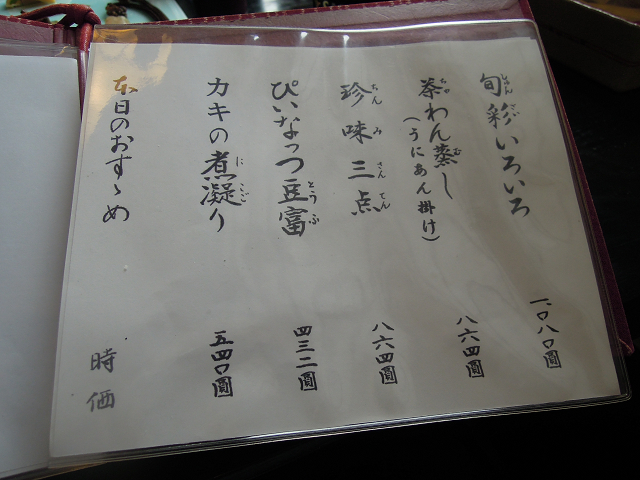 旬彩いろいろ 一、〇八〇圓
茶わん蒸し(うにあん掛け) 八六四圓
珍味三点 八六四圓
ぴいなっつ豆富 四三二圓
カキの煮凝り 五四〇圓
本日のおすゝめ 時価